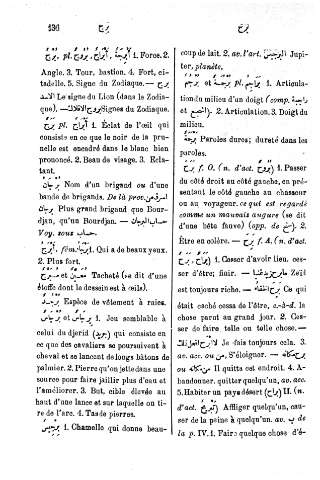 136 برج برج
بُرْج pl. بُرُوج، أَبْرَاج، أَبْرِجَة 1. Force. 2.
Angle. 3. Tour, bastion. 4. Fort, ci-
tadelle. 5. Signe du Zodiaque. — برج
الاسد Le signe du Lion (dans le Zodia-
que). بروج الافلاك — Signes du Zodiaque.
أَبْرَاج pl. 1. Éclat de l'œil qui
consiste en ce que le noir de la pru-
nelle est encadré dans le blanc bien
prononcé. 2. Beau de visage. 3. Écla-
tant.
Nom d'un brigand ou d'une
bande de brigands. De là prov.
Plus grand brigand que Bour-
djan, qu'un Bourdjan. —
Voy. sous حساب.
أَبْرَج, fém. بَرْجَاء Qui a de beaux yeux.
2. Plus fort.
Tacheté (se dit d'une
étoffe dont le dessin est à œils).
Espèce de vêtement à raies.
بِرْجَاس et 1. Jeu semblable à
celui du djerid (جريد) qui consiste en
ce que des cavaliers se poursuivent à
cheval et se lancent de longs bâtons de
palmier. 2. Pierre qu'on jette dans une
source pour faire jaillir plus d'eau et
l'améliorer. 3. But, cible élevée au
haut d'une lance et sur laquelle on ti-
re de l'arc. 4. Tas de pierres.
بِرْجِيس 1. Chamelle qui donne beau-
coup de lait. 2. av. l'art. البرجيس Jupi-
ter, planète.
بُرْجُمَة pl. بَرَاجِم 1. Articula-
tion du milieu d'un doigt (comp.
et). 2. Articulation. 3. Doigt du
milieu.
Paroles dures; dureté dans les
paroles.
بَرَحَ f. O. (n. d'act. بُرُوح) 1. Passer
du côté droit au côté gauche, en pré-
sentant le côté gauche au chasseur
ou au voyageur. ce qui est regardé
comme un mauvais augure (se dit
d'une bête fauve) (opp. de سنح). 2.
Être en colère. — بَرِحَ f. A. (n. d'act.
بَرَاح) 1. Cesser d'avoir lieu. ces-
ser d'être; finir. — ما برح زيد غنيا Zeïd
est toujours riche. — برح الخفاء Ce qui
était caché cessa de l'être, c.-à-d. la
chose parut au grand jour. 2. Ces-
ser de faire telle ou telle chose. —
لا ابرح افعل ذلك Je fais toujours cela. 3.
av. acc. ou من, S'éloigner. — برح مكانه
ou من Il quitta cet endroit. 4. A-
bandonner. quitter quelqu'un, av. acc.
5. Habiter un pays désert (براح) II. (n.
d'act. تبريح) Affliger quelqu'un, cau-
ser de la peine à quelqu'un. av. ب de
la p. IV. 1. Faire quelque chose d'é-